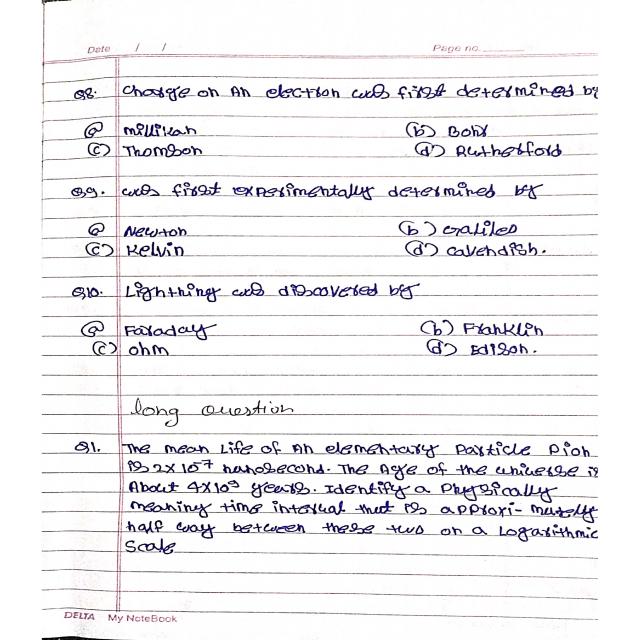 Date / / Page no.
Q8. Charge on An electron was first determined by
(a) Millikan (b) Bohr
(c) Thomson (d) Rutherford
Q9. was first experimentally determined by
(a) Newton (b) Galileo
(c) Kelvin (d) Cavendish.
Q10. Lightning was discovered by
(a) Faraday (b) Franklin
(c) ohm (d) Edison.
long question
Q1. The mean Life of An elementary Particle Pion
is 2X10⁻⁷ nanosecond. The Age of the universe is
About 4X10⁹ years. Identify a Physically
meaning time interval that is approxi-mately
half way between these two on a Logarithmic
Scale
DELTA My NoteBook